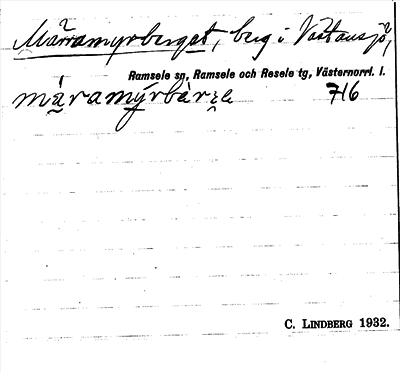 Märramyrberget, berg i Västansjö,
Ramsele sn, Ramsele och Resele tg, Västernorrl. l.
716
C. LINDBERG 1932.